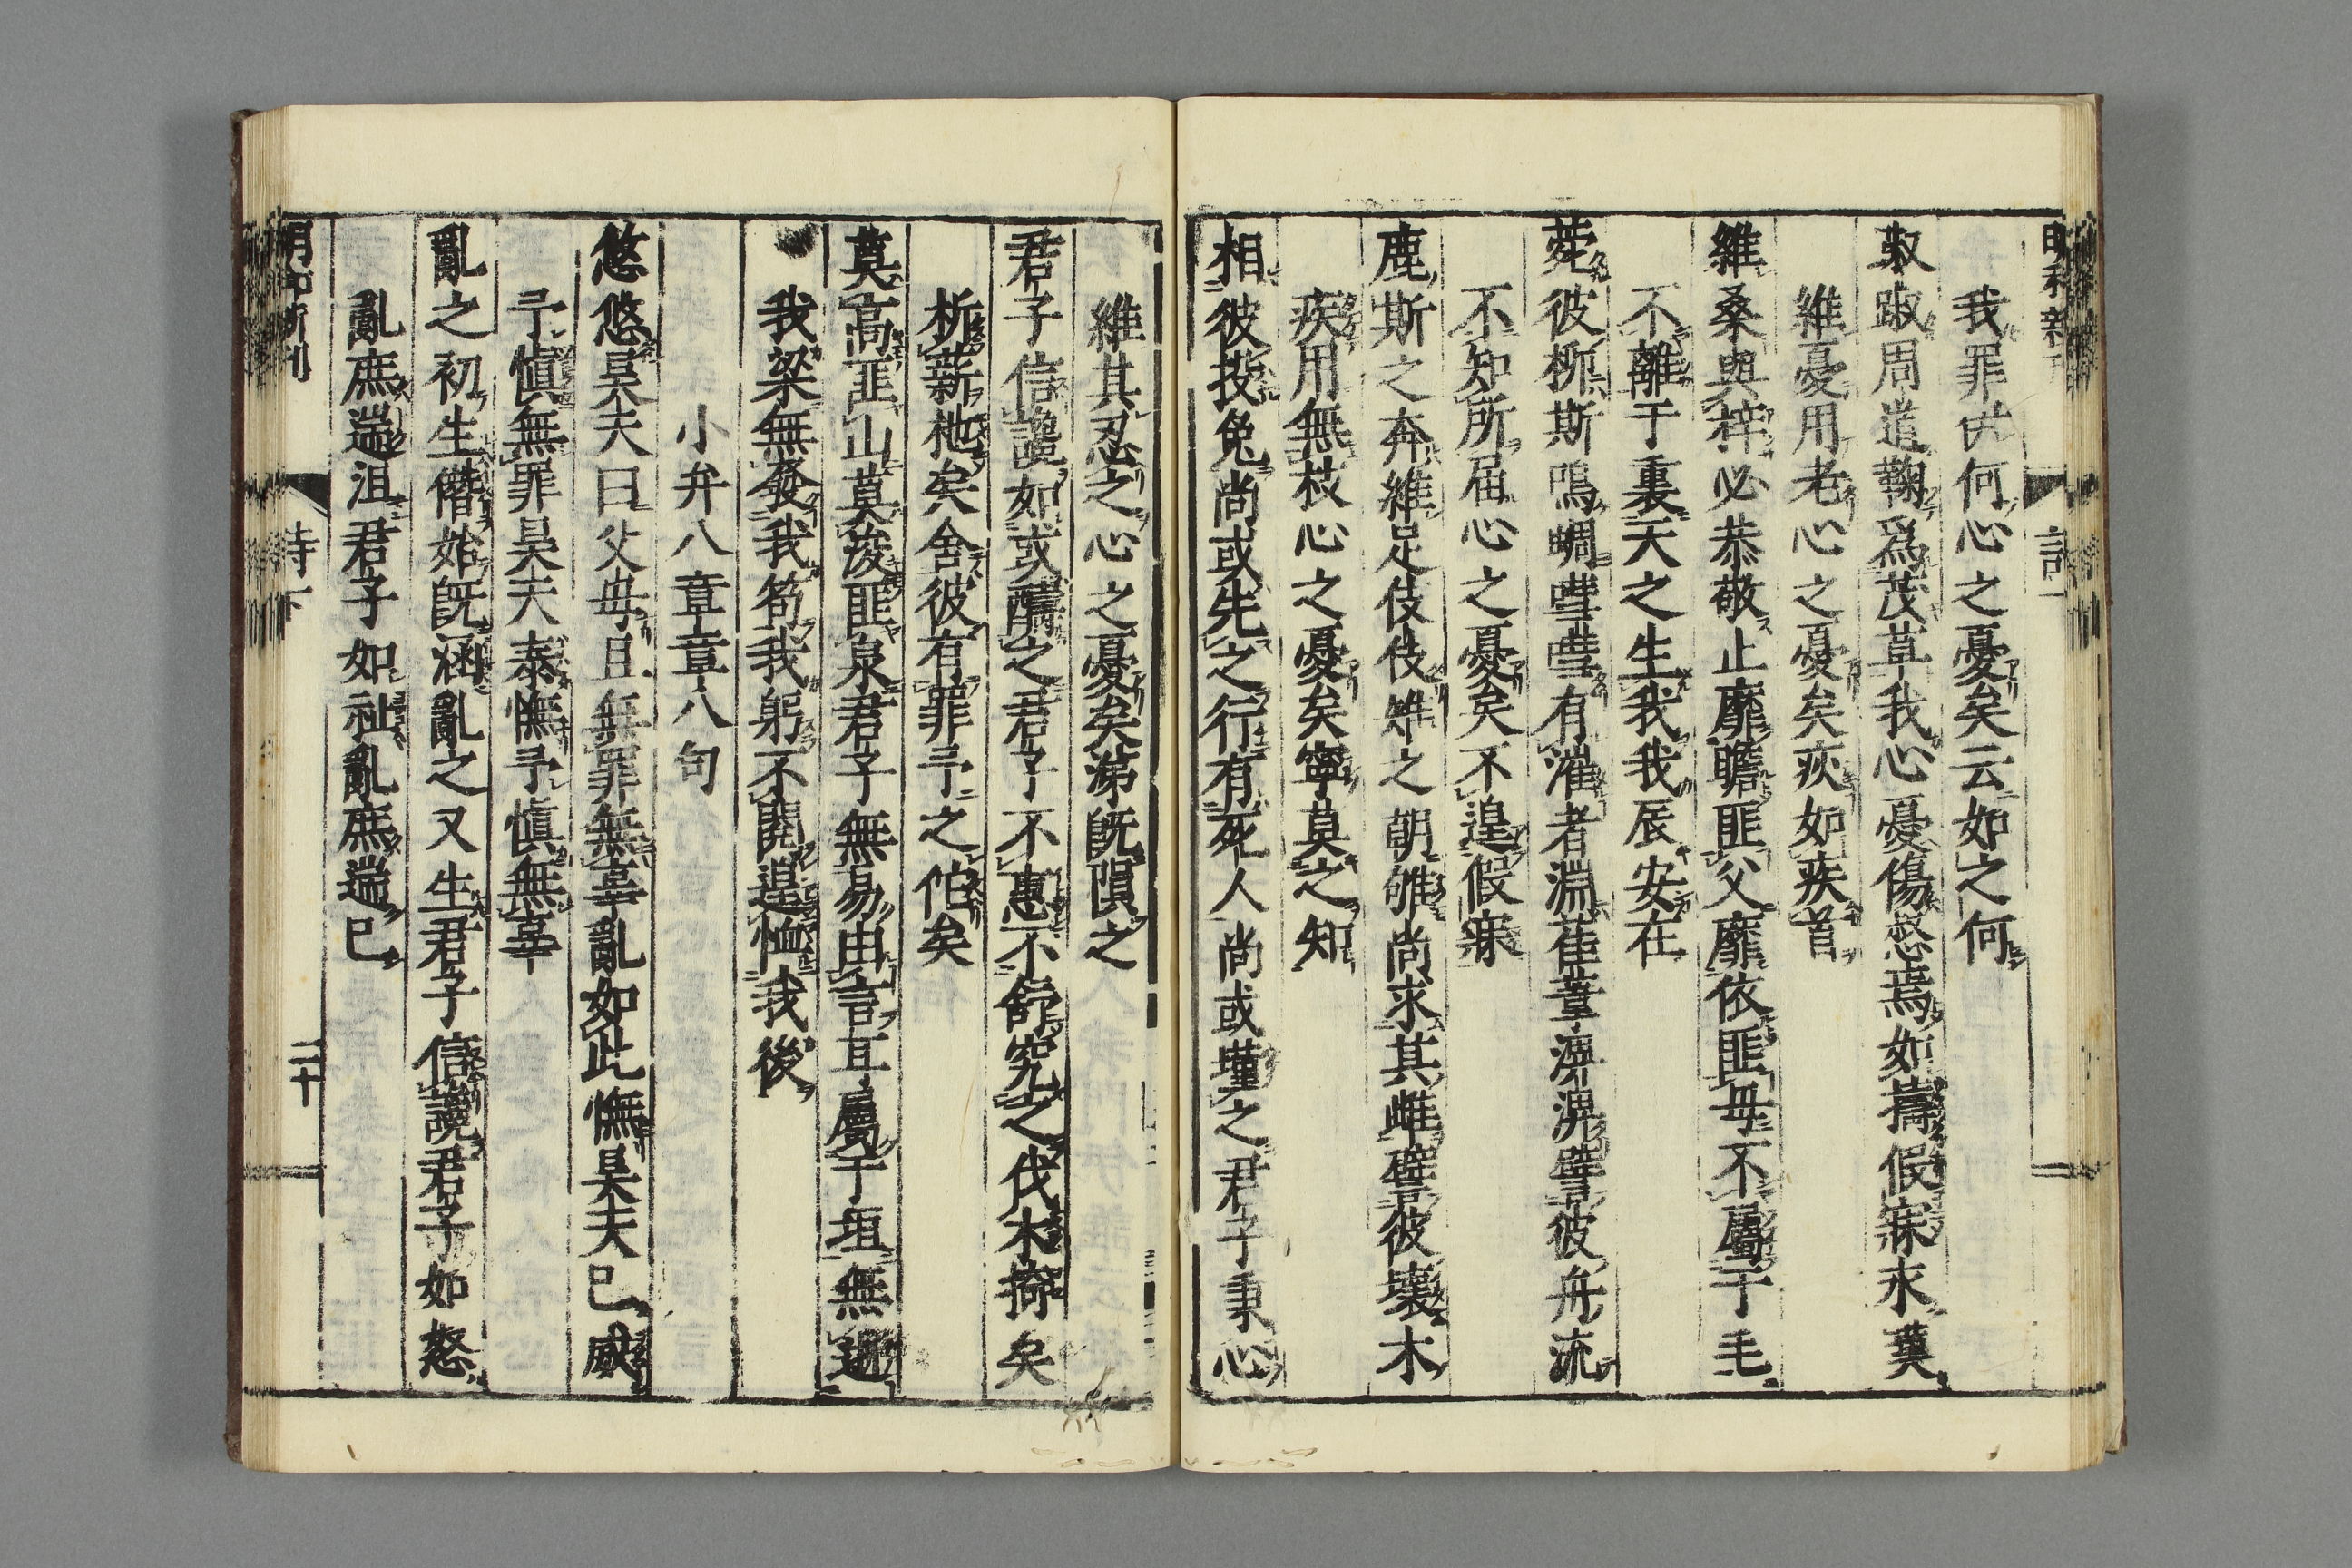 我罪伊何心之憂矣云如之何
踧踧周道鞫爲茂草我心憂傷惄焉如擣假寐永嘆
維憂用老心之憂矣疢如疾首
維桑與梓必恭敬止靡瞻匪父靡依匪毋不屬于毛
不離于裏天之生我我辰安在
菀彼柳斯鳴蜩嘒嘒有漼者淵萑葦淠淠譬彼舟流
不知所届心之憂矣不遑假寐
鹿斯之奔維足伎伎雉之朝雊尚求其雌譬彼壞木
疾用無枝心之憂矣寧莫之知
相彼投兔尚或先之行有死人尚或墐之君子秉心
維其忍之心之憂矣涕既隕之
君子信讒如或醻之君子不惠不舒究之伐木掎矣
析薪杝矣舍彼有罪予之佗矣
莫高匪山莫浚匪泉君子無易由言耳屬于垣無逝
我梁無發我笱我躬不閱遑恤我後
小弁八章章八句
悠悠昊天曰父毋且無罪無辜亂如此憮昊天已威
予愼無罪昊天泰憮予愼無辜
亂之初生僭始旣涵亂之又生君子信讒君子如怒
亂庶遄沮君子如祉亂庶遄已
詩下
二十